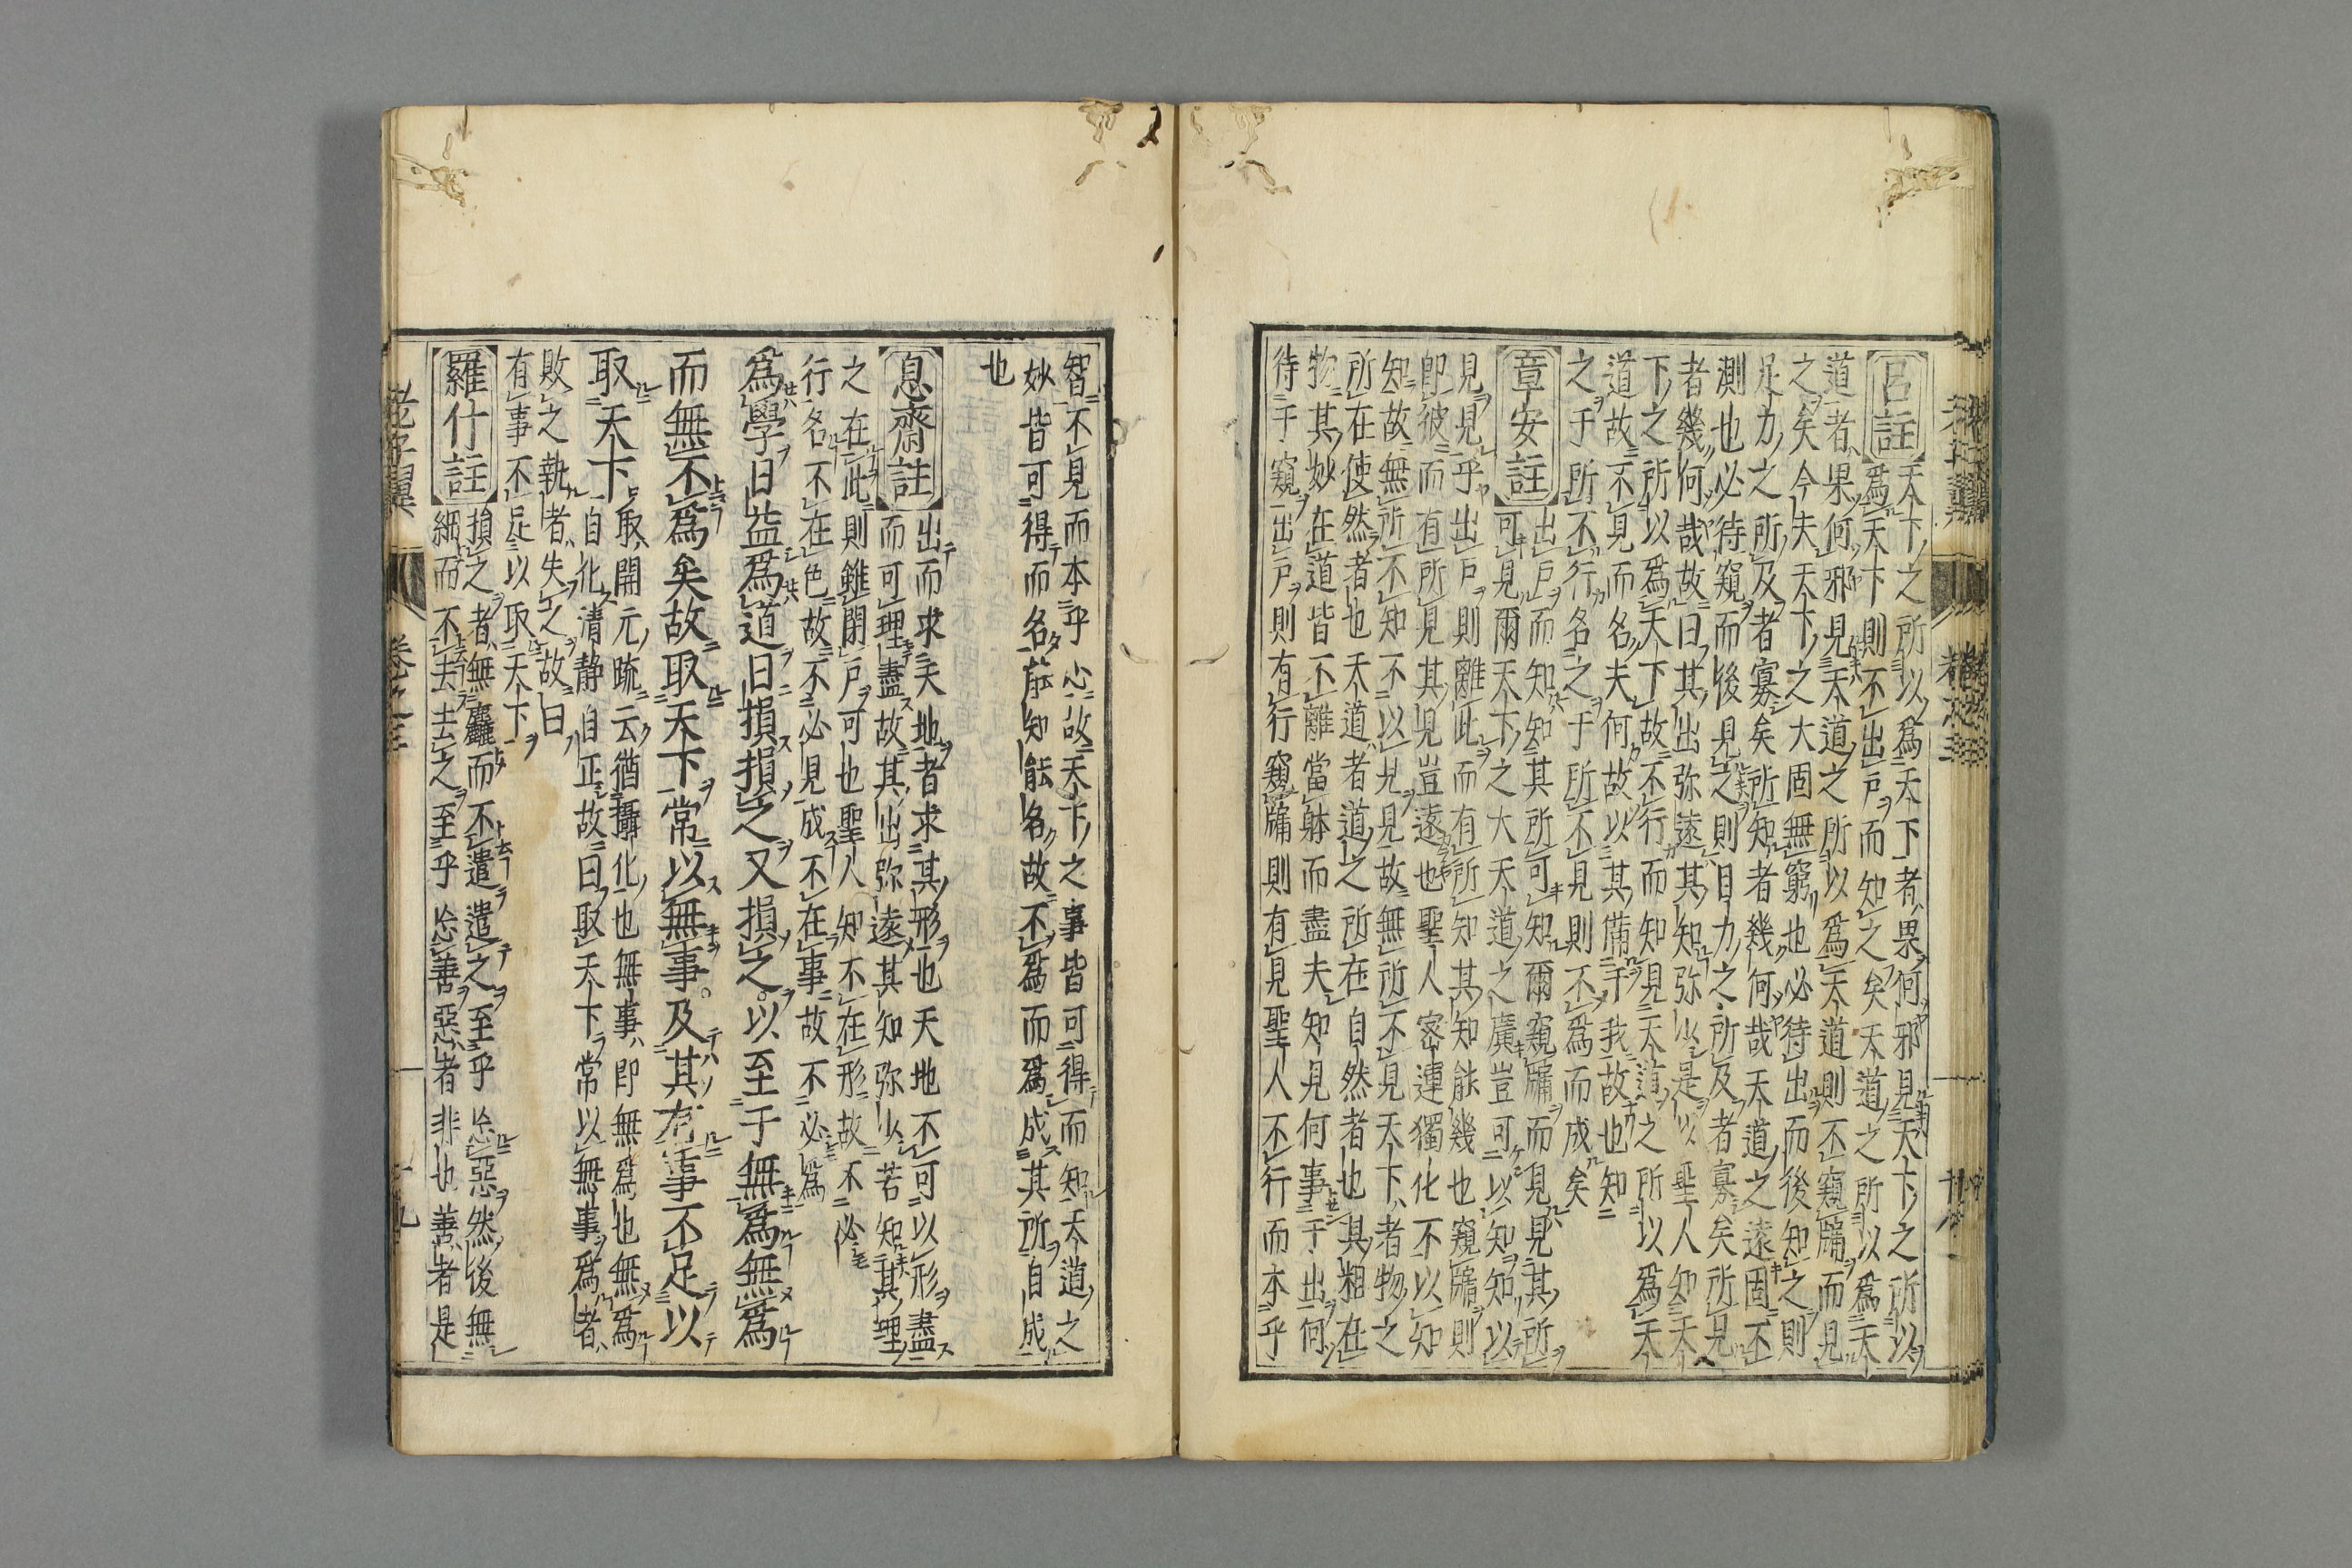 呂註
天下之所以爲天下者果何邪見天下之所以
爲天下則不出戶而知之矣天道之所以爲天
道者果何邪見天道之所以爲天道則不窺牖而見
之矣今夫天下之大固無窮也必待出而後知之則
足力之所及者寡矣所知者幾何哉天道之遠固不
測也必待窺而後見之則目力之所及者寡矣所見
者幾何哉故曰其出弥遠其知弥少是以聖人知天
下之所以爲天下故不行而知見天道之所以爲天
道故不見而名夫何故以其備于我故也知
之于所不行名之于所不見則不爲而成矣
章安註
出戶而知知其所可知爾窺牖而見見其所
可見爾天下之大天道之廣豈可以知知以
見見乎出戶則離此而有所知其知能幾也窺牖則
卽彼而有所見其見豈遠也聖人密連獨化不以知
知故無所不知不以見見故無所不見天下者物之
所在使然者也天道者道之所在自然者也其粗在
物其妙在道皆不離當躰而盡夫知見何事于出何
待于窺出戶則有行窺牖則有見聖人不行而本乎
智不見而本乎心故天下之事皆可得而知天道之
妙皆可得而名能知能名故不爲而爲成其所自成
也
息齋註
出而求天地者求其形也天地不可以形盡
而可理盡故其出弥遠其知弥少若知其理
之在此則雖閉戶可也聖人知不在形故不必
行名不在色故不必見成不在事故不必爲
爲學日益爲道日損損之又損之以至于無爲無爲
而無不爲矣故取天下常以無事及其有事不足以
取天下
取開元疏云猶攝化也無事卽無爲也無爲
自化清靜自正故曰取天下常以無事爲者
敗之執者失之故曰
有事不足以取天下
羅什註
損之者無麤而不遣遣之至乎忘惡然後無
細而不去去之至乎忘善惡者非也善者是
老子翼 卷之三 十九